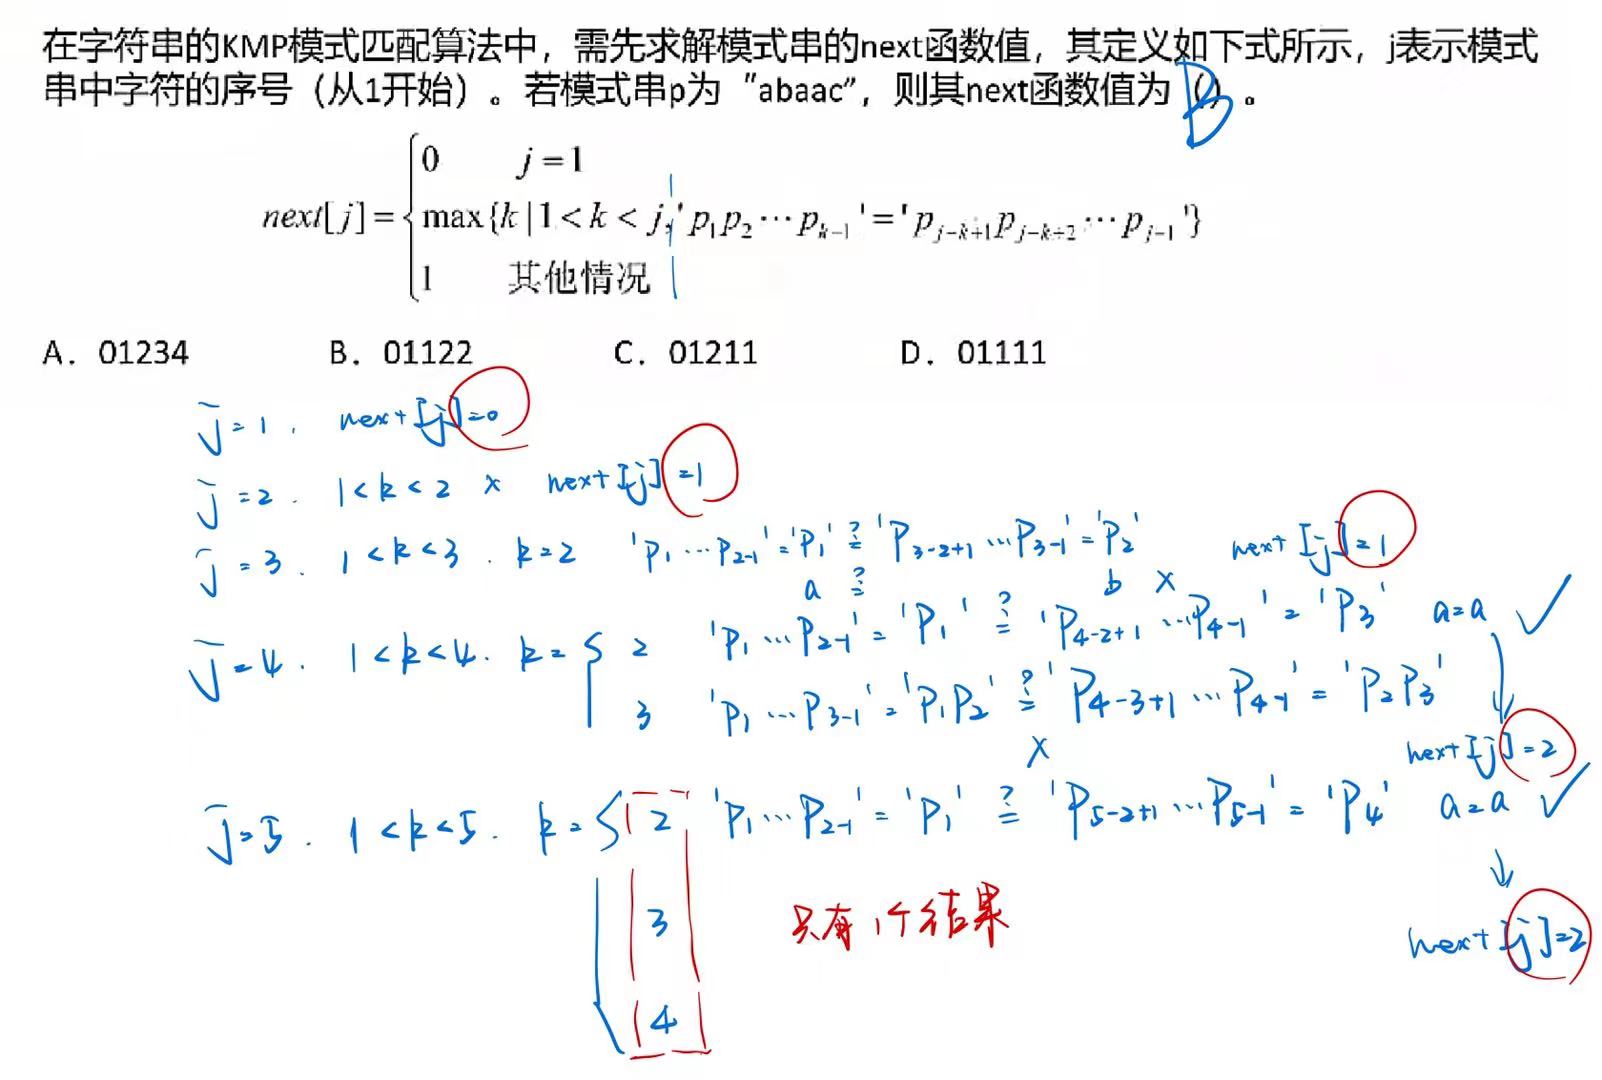 在字符串的KMP模式匹配算法中，需先求解模式串的next函数值，其定义如下式所示，j表示模式
串中字符的序号（从1开始）。若模式串p为“abaac”，则其next函数值为（）。
B
0 j=1
next[j]= max{k|1<k<j,'p1p2…pk-1'='pj-k+1pj-k+2…pj-1'}
1 其他情况
A．01234 B．01122 C．01211 D．01111
j=1. next[j]=0
j=2. 1<k<2 × next[j]=1
j=3. 1<k<3. k=2 'P1…P2-1'='P1' ≟ 'P3-2+1…P3-1'='P2' next[j]=1
a ≟ b ×
j=4. 1<k<4. k={ 2 'P1…P2-1'='P1' ≟ 'P4-2+1…P4-1'='P3' a=a ✓
3 'P1…P3-1'='P1P2' ≟ 'P4-3+1…P4-1'='P2P3'
× next[j]=2
j=5. 1<k<5. k={ 2 'P1…P2-1'='P1' ≟ 'P5-2+1…P5-1'='P4' a=a ✓
3 只有1个结果 next[j]=2
4